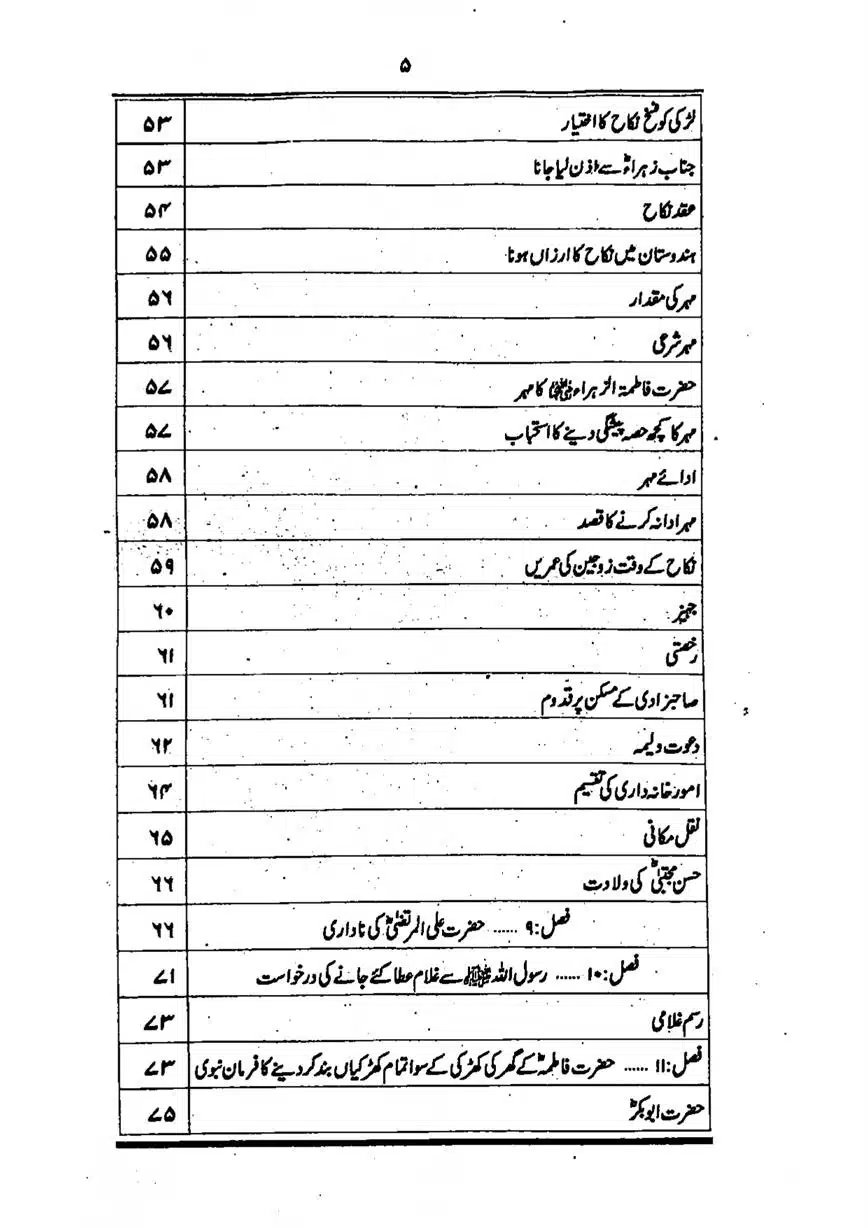 ۵
لڑکی کو فسخ نکاح کا اختیار ۵۳
جناب زہراءؓ سے اذن لیا جانا ۵۳
عقد نکاح ۵۴
ہندوستان میں نکاح کا ارزاں ہونا ۵۵
مہر کی مقدار ۵۶
مہر شرعی ۵۶
حضرت فاطمۃ الزہراء کا مہر ۵۷
مہر کا کچھ حصہ پیشگی دینے کا استحباب ۵۷
ادائے مہر ۵۸
مہر ادا نہ کرنے کا قصد ۵۸
نکاح کے وقت زوجین کی عمریں ۵۹
جہیز ۶۰
رخصتی ۶۱
صاحبزادی کے مسکن پر قدوم ۶۱
دعوت ولیمہ ۶۲
امور خانہ داری کی تقسیم ۶۴
نقل مکانی ۶۵
حسن مجتبیٰؓ کی ولادت ۶۶
فصل:۹ ...... حضرت علی المرتضیٰؓ کی ناداری ۶۶
فصل:۱۰ ...... رسول اللہ ﷺ سے غلام عطا کئے جانے کی درخواست ۷۱
رسم غلامی ۷۳
فصل:۱۱ ...... حضرت فاطمہؓ کے گھر کی کھڑکی کے سوا تمام کھڑکیاں بند کر دینے کا فرمان نبوی ۷۳
حضرت ابوبکرؓ ۷۵